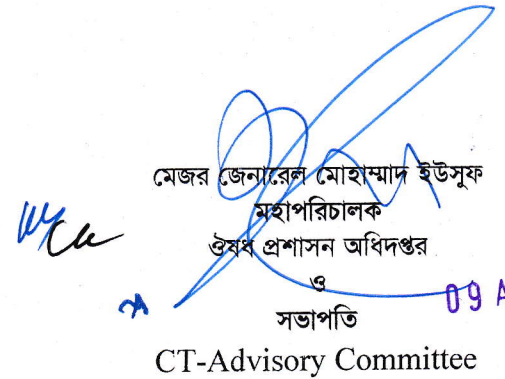 মেজর জেনারেল মোহাম্মাদ ইউসুফ
মহাপরিচালক
ঔষধ প্রশাসন অধিদপ্তর
ও
সভাপতি
09 A
CT-Advisory Committee